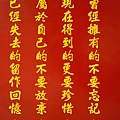 曾經擁有的不要忘記
現在得到的更要珍惜
屬於自己的不要放棄
已經失去的留作回憶